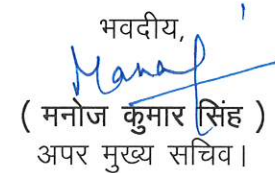 भवदीय,
( मनोज कुमार सिंह )
अपर मुख्य सचिव।